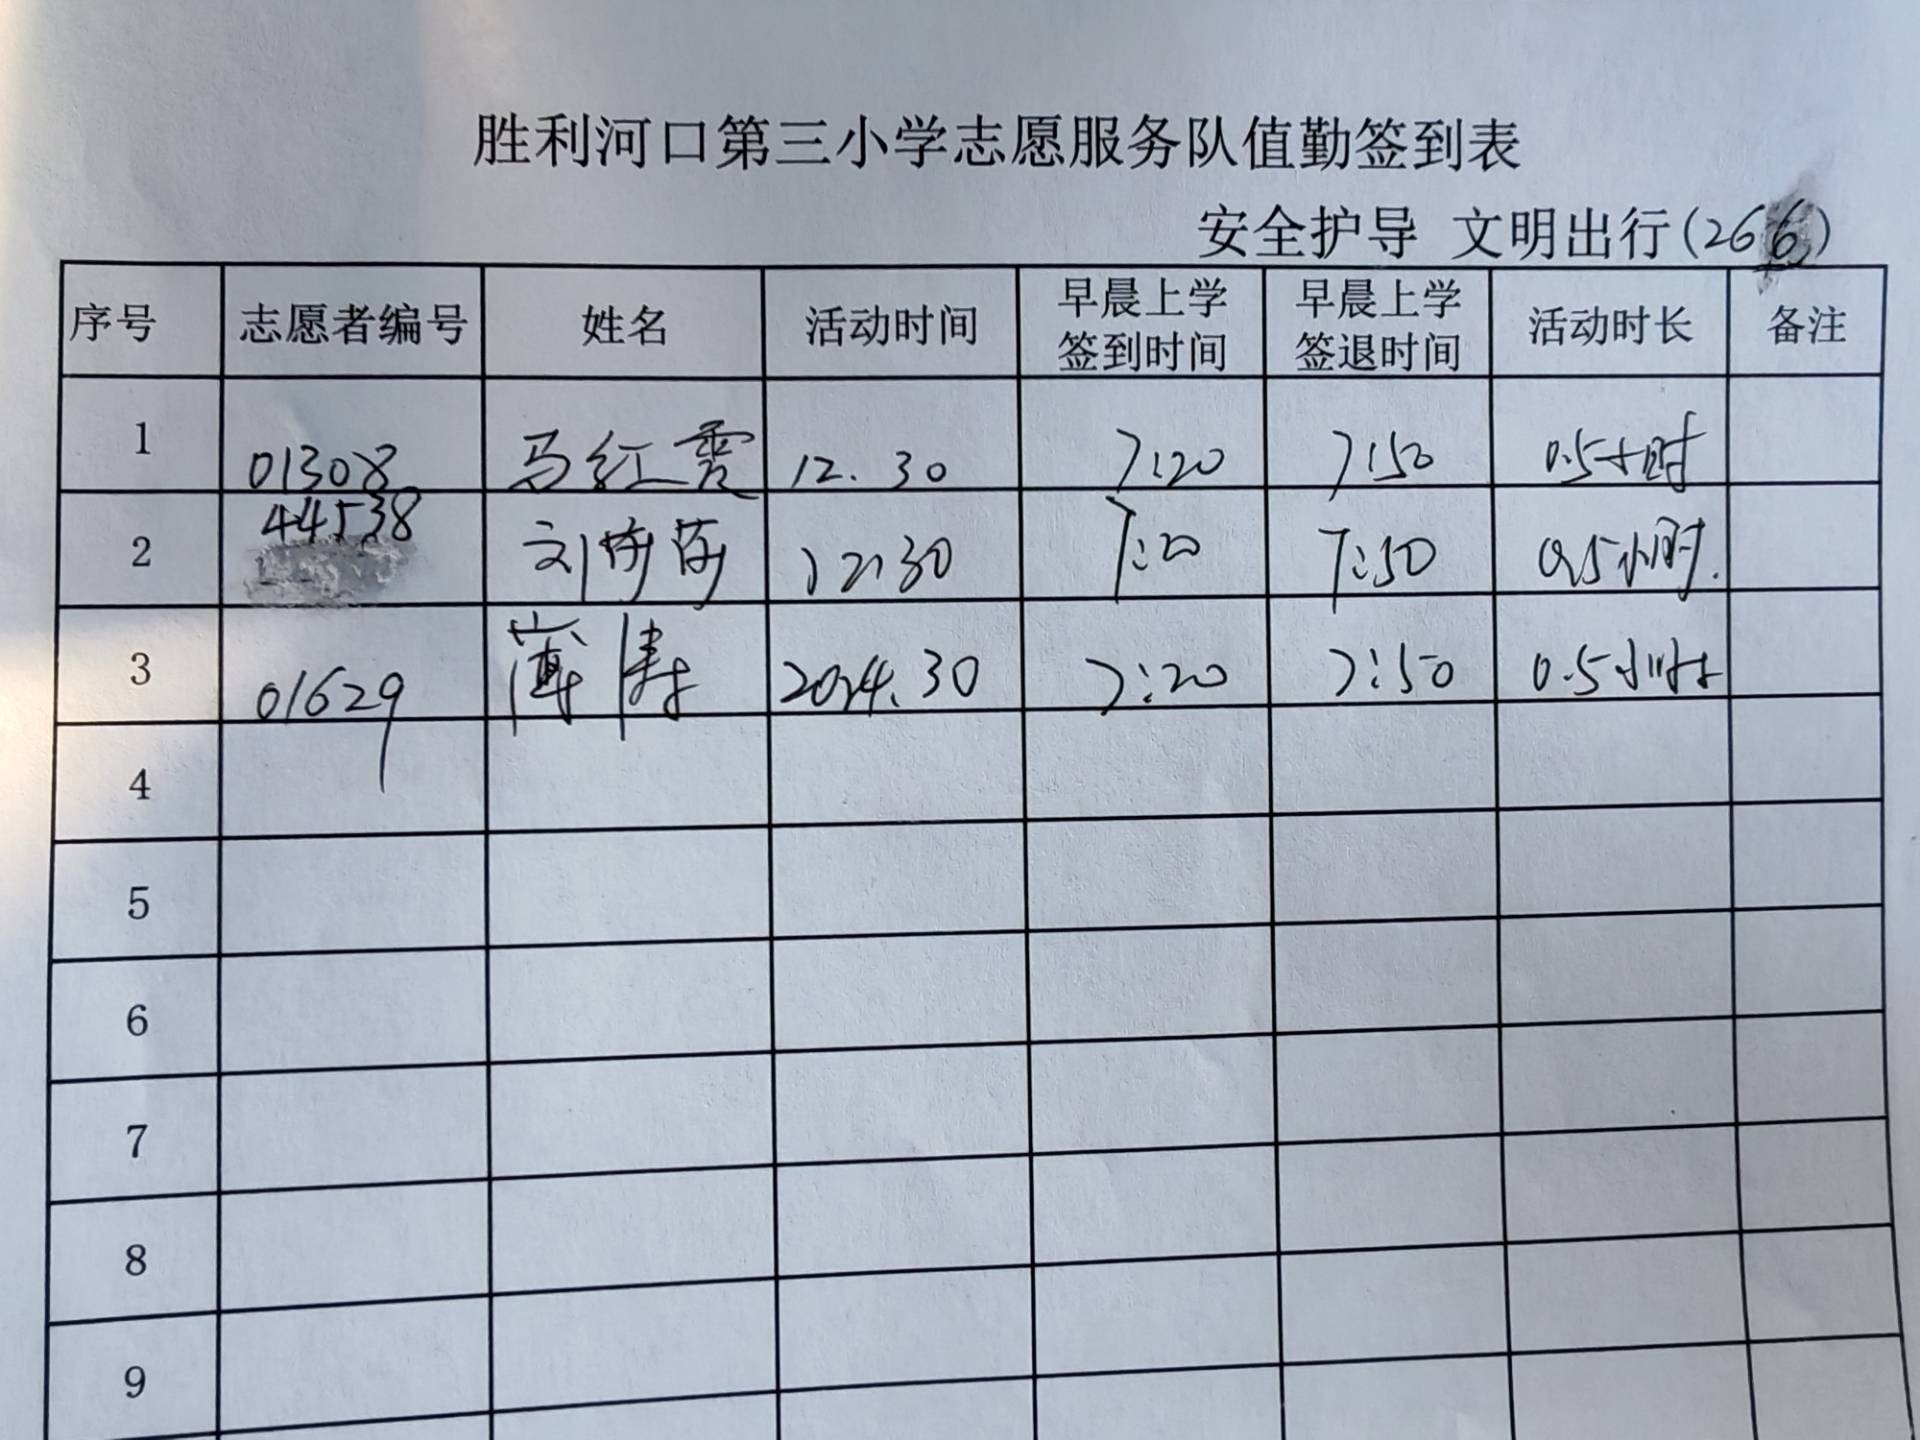 胜利河口第三小学志愿服务队值勤签到表
安全护导 文明出行(266)
序号 志愿者编号 姓名 活动时间 早晨上学签到时间 早晨上学签退时间 活动时长 备注
1 01308 马红霞 12.30 7:20 7:50 0.5小时
2 44538 刘莎莎 12.30 7:20 7:50 0.5小时.
3 01629 薄涛 7:20 7:50 0.5小时
4
5
6
7
8
9